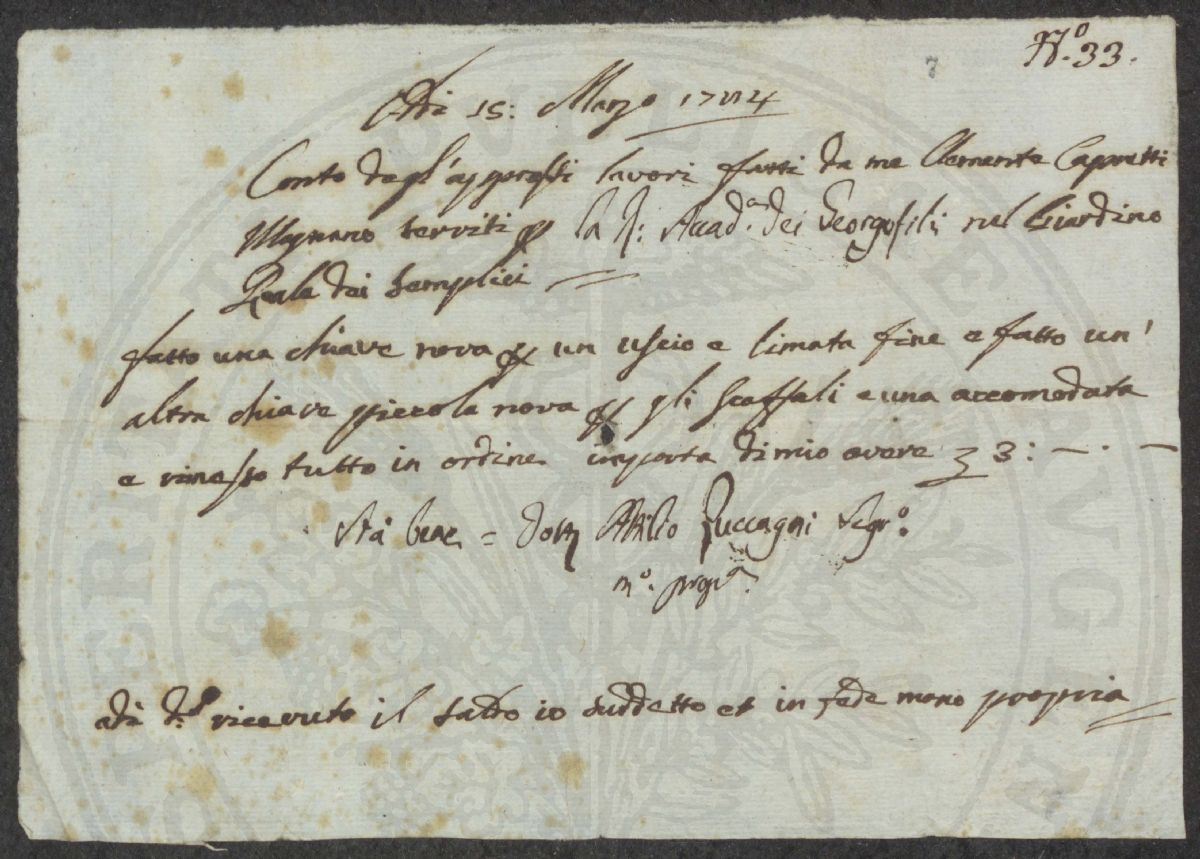 N.º 33.
7
Adi 15: Marzo 1784
Conto degl'appresti lavori fatti da me Clemente Capretti
Magnano serviti p la R: Accad.ª dei Georgofili nel Giardino
Reale dei Semplici
fatto una chiave nova p un uscio e limata fine e fatto un'
altra chiave piccola nova p gli Scaffali e una accomodata
e rimesso tutto in ordine importa di mio avere 3: — . —
Stà bene = Dott Attilio Zuccagni Segr.º
m.º prop.ª
adi d.º ricevuto il saldo io suddetto et in fede mano propria